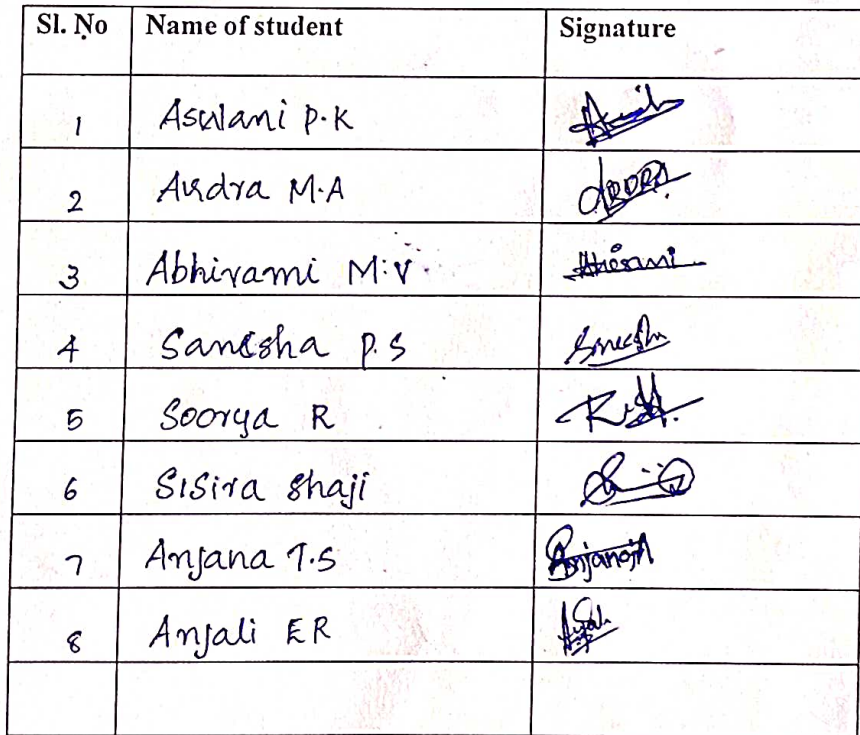 Sl. No Name of student Signature
1 Aswani P.K
2 Ardra M.A ARDRA
3 Abhirami M.V.
4 Sanisha P.S
5 Soorya R
6 Sisira Shaji
7 Anjana T.S
8 Anjali E R